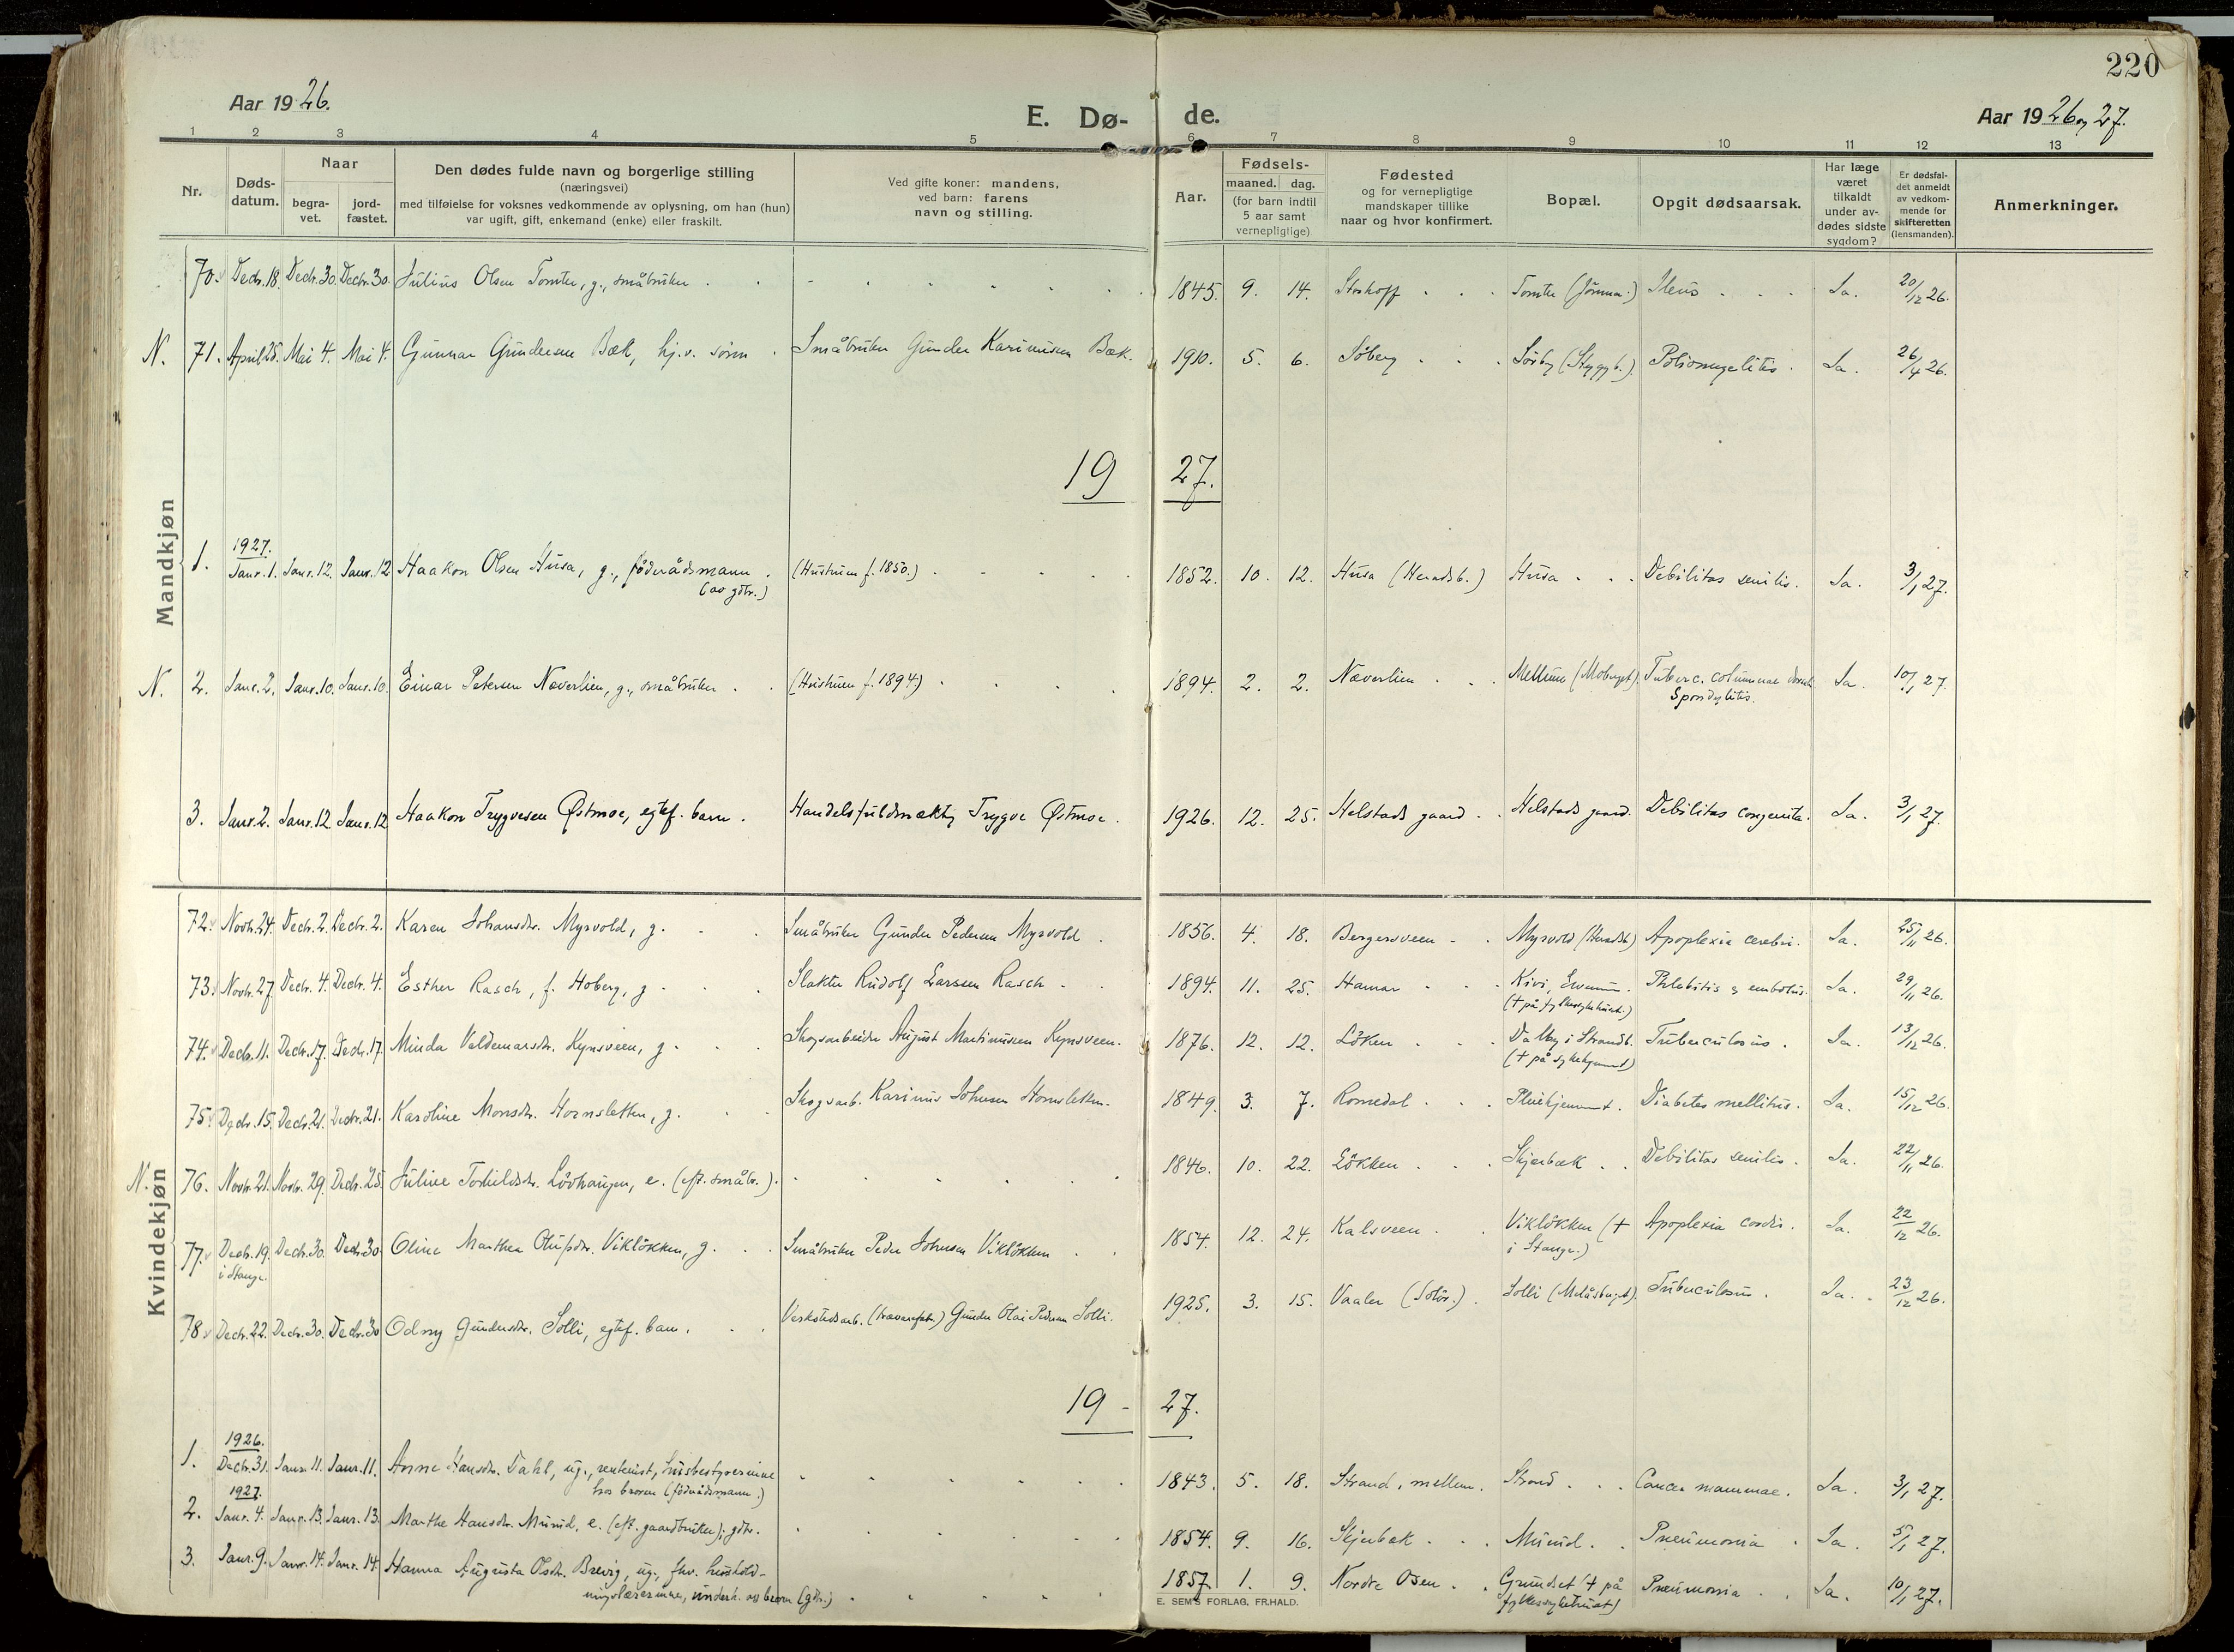 220
Aar 1926.
E. Dø-
de.
Aar 1926 og 27.
1 2 3 4 5 6 7 8 9 10 11 12 13
Nr.
Døds-
datum.
Naar
begra-
vet.
jord-
fæstet.
Den dødes fulde navn og borgerlige stilling
(næringsvei)
med tilføielse for voksnes vedkommende av oplysning, om han (hun)
var ugift, gift, enkemand (enke) eller fraskilt.
Ved gifte koner: mandens,
ved barn: farens
navn og stilling.
Aar.
Fødsels-
maaned. dag.
(for barn indtil
5 aar samt
vernepligtige)
Fødested
og for vernepligtige
mandskaper tillike
naar og hvor konfirmert.
Bopæl.
Opgit dødsaarsak.
Har læge
været
tilkaldt
under av-
dødes sidste
sygdom?
Er dødsfal-
det anmeldt
av vedkom-
mende for
skifteretten
(lensmanden).
Anmerkninger.
Mandkjøn
70. Decbr. 18. Decbr. 30. Decbr. 30. Julius Olsen Tomter, g., småbruker 1845. 9. 14. Storhoff Tomter Ileus Ja. 20/12 26.
N. 71. April 25. Mai 4. Mai 4. Gunnar Gundersen Bæk, hj.v. sønn Småbruker Gunder Karinusen Bæk. 1910. 5. 6. Söberg Sørby (Styggb.) Poliomyelitis. Ja. 26/4 26.
19 27.
1927.
1. Janr. 1. Janr. 12. Janr. 12 Haakon Olsen Husa, g., föderådsmann (Hustruen f. 1850.) 1852. 10. 12. Husa (Heradsb.) Husa Debilitas senilis. Ja. 3/1 27.
(av gdbr.)
N. 2. Janr. 2. Janr. 10. Janr. 10. Einar Petersen Næverlien, g., småbruker (Hustruen f. 1894) 1894. 2. 2. Næverlien Mellum Tuberc. columnae Ja. 10/1 27.
Spondylitis.
3. Janr. 2. Janr. 12 Janr. 12 Haakon Trygvesen Østmoe, egtef. barn. Handelsfuldmektig Trygve Østmoe. 1926. 12. 25. Helstads gaard Helstads gaard. Debilitas congenita. Ja. 3/1 27.
Kvindekjøn
72. Novbr. 24. Decbr. 2. Decbr. 2. Karen Johansdtr. Myrvold, g. Småbruker Gunder Pedersen Myrvold 1856. 4. 18. Bergersveen Myrvold (Heradsb.) Apoplexia cerebri. Ja. 25/11 26.
73. Novbr. 27. Decbr. 4. Decbr. 4. Esther Rasch, f. Hoberg, g. Slakter Rudolf Larsen Rasch 1894. 11. 25. Hamar Kivi, Phlebitis & embolus. Ja. 29/11 26.
(† på fylkessykehuset.)
74. Decbr. 11. Decbr. 17. Decbr. 17. Minda Valdemarsdtr. Kynsveen, g. Skogsarbeider August Martinusen Kynsveen. 1876. 12. 12. Löken Dalby i Strandb. Tuberculosis. Ja. 13/12 26.
(† på sykehjemmet)
75. Decbr. 15. Decbr. 21. Decbr. 21. Karoline Monsdtr. Hornsletten, g. Skogsarb. Karinus Johnsen Hornsletten. 1849. 3. 7. Romedal Pleiehjemmet. Diabetes mellitus. Ja. 15/12 26.
N. 76. Novbr. 21. Novbr. 29. Decbr. 25. Juline Torkildsdtr. Lövhaugen, e. (eft. småbr.) 1846. 10. 22. Lökken Skjerbæk Debilitas senilis. Ja. 22/11 26.
77. Decbr. 19. Decbr. 30. Decbr. 30. Oline Marthea Olufsdtr. Viklökken, g. Småbruker Peder Johnsen Viklökken 1854. 12. 24. Kalsveen Viklökken († Apoplexia cordis. Ja. 22/12 26.
i Stange. i Stange.)
78. Decbr. 22. Decbr. 30. Decbr. 30 Odny Gundersdtr. Solli, egtef. barn. Verkstedsarb. Gunder Olai Pedersen Solli. 1925. 3. 15. Vaaler (Solör.) Solli Tuberculosis. Ja. 23/12 26.
19 - 27.
1926.
1. Decbr. 31. Janr. 11. Janr. 11. Anne Hansdtr. Dahl, ug., rentenist, husbestyrerinne 1843. 5. 18. Strand, mellem. Strand Cancer mammae. Ja. 3/1 27.
hos broren (föderådsmann.)
1927.
2. Janr. 4. Janr. 13. Janr. 13. Marthe Hansdtr. Munid, e. (eft. gaardbruker); gdbr. 1854. 9. 16. Skjerbæk Munid. Pneumonia Ja. 5/1 27.
3. Janr. 9. Janr. 14. Janr. 14. Hanna Augusta Olsdtr. Brevig, ug., fhv. hushold- 1857. 1. 9. Nordre Osen Grundset († på Pneumonia. Ja. 10/1 27.
ningslærerinne, underh. av broren (gdbr.) fylkessykehuset)
E. SEM'S FORLAG, FR.HALD.